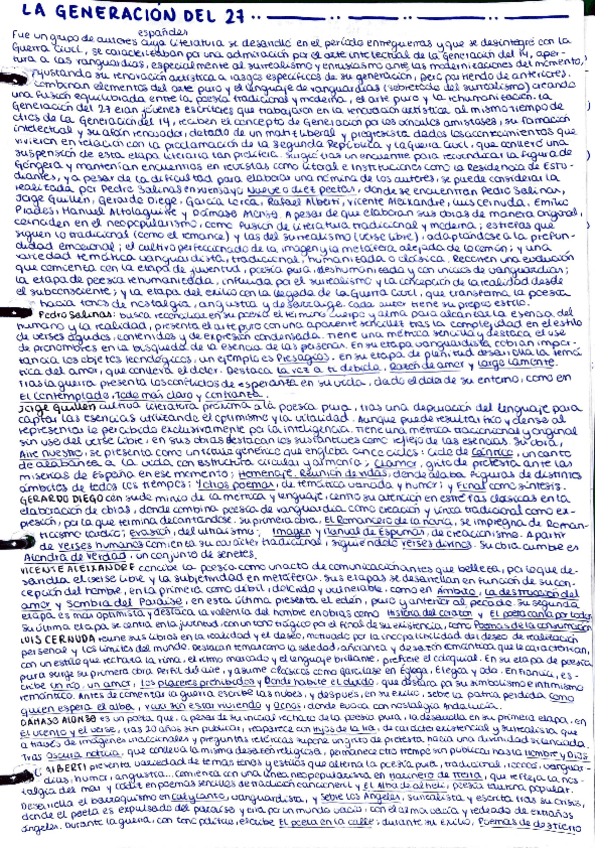 LA GENERACIÓN DEL 27
españoles
Fue un grupo de autores cuya literatura se desarrolló en el período entreguerras y que se desintegró con la
Guerra Civil, se caracterizaban por una admiración por el arte intelectual de la Generación del 14, aper-
tura a las vanguardias, especialmente al surrealismo y entusiasmo ante las modernizaciones del momento,
ajustando su renovación artística a rasgos específicos de su generación, pero partiendo de anteriores.
Combinan elementos del arte puro y el lenguaje de vanguardias (sobretodo del surrealismo) creando
una fusión equilibrada entre la poesía tradicional y moderna, el arte puro y la rehumanización. La
Generación del 27 eran jóvenes escritores que trabajaron en la renovación artística al mismo tiempo de
otros de la Generación del 14, reciben el concepto de Generación por los vínculos amistosos, su formación
intelectual y su afán renovador, dotado de un matiz liberal y progresista dados los acontecimientos que
vivieron en relación con la proclamación de la Segunda República y la Guerra Civil, que conllevó una
suspensión de esta etapa literaria tan prolífera. Surgió tras un encuentro para reivindicar la figura de
Góngora y mantenían encuentros en revistas como Litoral e instituciones como la Residencia de Estu-
diantes, y a pesar de la dificultad para elaborar una nómina de los autores, se puede considerar la
realizada por Pedro Salinas en su ensayo Nueve o diez poetas, donde se encuentran Pedro Salinas,
Jorge Guillén, Gerardo Diego, García Lorca, Rafael Alberti, Vicente Aleixandre, Luis Cernuda, Emilio
Prados, Manuel Altolaguirre y Dámaso Alonso. A pesar de que elaboran sus obras de manera original,
coinciden en el neopopularismo, como fusión de literatura tradicional y moderna; estrofas que
siguen lo tradicional (como el romance) y las del surrealismo (verso libre), adaptándose a la profun-
didad emocional; el cultivo perfeccionado de la imagen y la metáfora alejada de lo común; y una
variedad temática vanguardista, tradicional, humanizada o clásica. Recorren una evolución
que comienza con la etapa de juventud, poesía pura, deshumanizada y con inicios de vanguardias;
la etapa de poesía rehumanizada, influida por el surrealismo y la concepción de la realidad desde
el subconsciente; y la etapa del exilio con la llegada de la Guerra Civil, que transforma la poesía
hacia tonos de nostalgia, angustia y desarraigo. Cada autor tiene su propio estilo.
Pedro Salinas: busca reconciliar en su poesía el término cuerpo y alma para alcanzar la esencia del
humano y la realidad, presenta el arte puro con una aparente sencillez tras la complejidad en el estilo
de versos agudos, contenidos y de expresión condensada. Tiene una métrica sencilla y destaca el uso
de pronombres en la búsqueda de la esencia de las personas. En su etapa vanguardista cobran impor-
tancia los objetos tecnológicos, un ejemplo es Presagios. En su etapa de plenitud desarrolla la temá-
tica del amor, que conlleva el dolor. Destaca La voz a ti debida, Razón de amor y Largo lamento.
Tras la guerra presenta los conflictos de esperanza en su vida, dado el dolor de su entorno, como en
El contemplado, Todo más claro y Confianza.
Jorge Guillén cultiva literatura próxima a la poesía pura, tras una depuración del lenguaje para
captar las esencias utilizando el optimismo y la vitalidad. Aunque puede resultar frío y denso al
representar lo percibido exclusivamente por la inteligencia. Tiene una métrica tradicional y original
sin uso del verso libre, en sus obras destacan los sustantivos como reflejo de las esencias. Su obra,
Aire nuestro, se presenta como un título genérico que engloba cinco ciclos: ciclo de Cántico, un canto
de alabanza a la vida con estructura circular y armonía; Clamor, grito de protesta ante las
miserias de España en ese momento; Homenaje. Reunión de vidas, donde alaba figuras de distintos
ámbitos de todos los tiempos; Y otros poemas, de temática variada y humor; y Final como síntesis.
GERARDO DIEGO con sude minio de la métrica y lenguaje, centró su atención en estrofas clásicas en la
elaboración de obras, donde combina poesía de vanguardia como creación y lírica tradicional como ex-
presión, por la que termina decantándose. Su primera obra, El Romancero de la novia, se impregna de Roman-
ticismo tardío; Evasión, del ultraísmo; Imagen y Manual de Espumas, de creacionismo. A partir
de Versos humanos comienza su carácter tradicional, siguiéndole Versos divinos. Su obra cumbre es
Alondra de verdad, un conjunto de sonetos.
VICENTE ALEIXANDRE concibe la poesía como un acto de comunicación antes que belleza, por lo que de-
sarrolla el verso libre y la subjetividad en metáforas. Sus etapas se desarrollan en función de su con-
cepción del hombre, en la primera como débil, dolorido y vulnerable, como en Ámbito, La destrucción del
amor y Sombra del Paraíso, en esta última presenta el edén, puro y anterior al pecado. Su segunda
etapa es más optimista y destaca la valentía del hombre en obras como Historia del corazón y El poeta canta por todos.
Su última etapa se centra en la juventud, con un tono trágico por el final de su existencia, como Poemas de la consumación
LUIS CERNUDA reúne sus libros en La realidad y el deseo, motivado por la incompatibilidad del deseo de realización
personal y los límites del mundo. Destacan temas como la soledad, añoranza y desazón romántica que lo caracterizan,
con un estilo que rechaza la rima, el ritmo marcado y el lenguaje brillante, prefiere el coloquial. En su etapa de poesía
pura surge su primera obra Perfil del aire, y asume clásicos como Garcilaso en Égloga, Elegía y Oda. En Francia, es-
cribe Un río, un amor, Los placeres prohibidos y Donde habite el olvido, que destaca por su simbolismo e intimismo
romántico. Antes de comenzar la guerra escribe Las nubes, y después, en su exilio, sobre la patria perdida como
quien espera el alba, Vivir sin estar viviendo y Ocnos, donde evoca con nostalgia Andalucía.
DÁMASO ALONSO es un poeta que, a pesar de su inicial rechazo de la poesía pura, la desarrolla en su primera etapa, en
El viento y el verso, tras 20 años sin publicar, reaparece con Hijos de la ira, de carácter existencial y surrealista que
a través de imágenes irracionales y preguntas retóricas supone un grito de protesta hacia una divinidad silenciada.
Tras Oscura noticia, que conlleva la misma desazón religiosa, permanece otro tiempo sin publicar hasta Hombre y Dios
ALBERTI presenta variedad de temas, tonos y estilos que alterna la poesía pura, tradicional, irónica, vanguar-
dias, humor, angustia... Comienza con una línea neopopularista en Marinero en tierra, que refleja la nos-
talgia del mar y cádiz en poemas sencillos de tradición cancioneril y El Alba del alhelí, poesía taurina popular.
Desarrolla el barroquismo en Cal y canto, vanguardista, y Sobre los Ángeles, surrealista y escrita tras su crisis,
donde el poeta es expulsado del paraíso y erra por un mundo vacío, con el alma vacía y rodeado de extraños
ángeles. Durante la guerra, con tono político, escribe El poeta en la calle; durante su exilio, Poemas de destierro